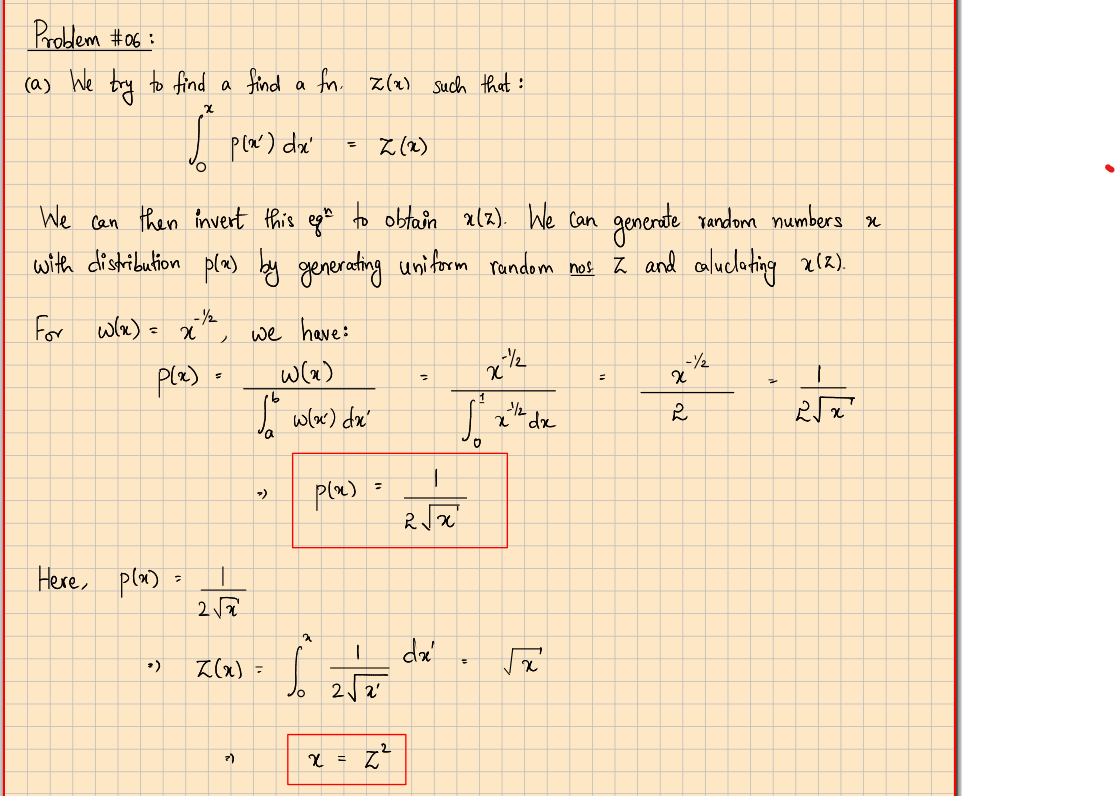 Problem #06 :
(a) We try to find a find a fn. Z(x) such that :
∫₀ˣ p(x') dx' = Z(x)
We can then invert this eqⁿ to obtain x(Z). We can generate random numbers x
with distribution p(x) by generating uniform random nos Z and caluclating x(Z).
For w(x) = x^(-1/2), we have:
p(x) = w(x) / ∫ₐᵇ w(x') dx' = x^(-1/2) / ∫₀¹ x^(-1/2) dx = x^(-1/2) / 2 = 1 / (2√x)
⇒ p(x) = 1 / (2√x)
Here, p(x) = 1 / (2√x)
⇒ Z(x) = ∫₀ˣ 1 / (2√x') dx' = √x
⇒ x = Z²